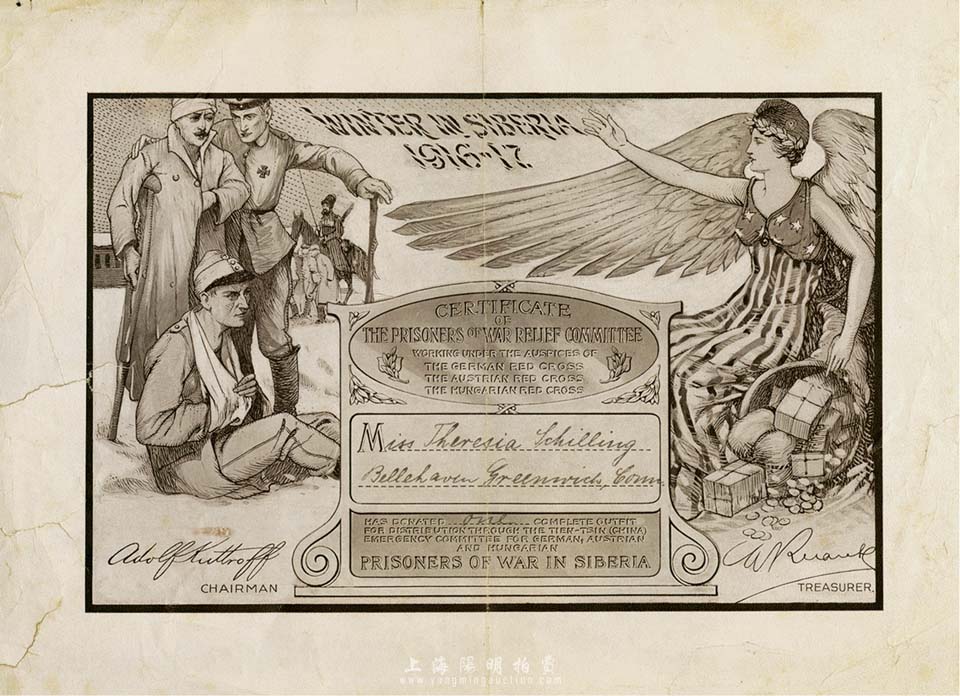 WINTER IN SIBERIA
1916-17
CERTIFICATE
OF
THE PRISONERS OF WAR RELIEF COMMITTEE
WORKING UNDER THE AUSPICES OF
THE GERMAN RED CROSS
THE AUSTRIAN RED CROSS
THE HUNGARIAN RED CROSS
Miss Theresia Schilling
Bellehaven Greenwich, Conn
HAS DONATED one COMPLETE OUTFIT
FOR DISTRIBUTION THROUGH THE TIEN-TSIN (CHINA)
EMERGENCY COMMITTEE FOR GERMAN, AUSTRIAN
AND HUNGARIAN
PRISONERS OF WAR IN SIBERIA.
Adolf Kuttroff
CHAIRMAN
TREASURER.
上海陽明拍賣
www.yangmingauction.com